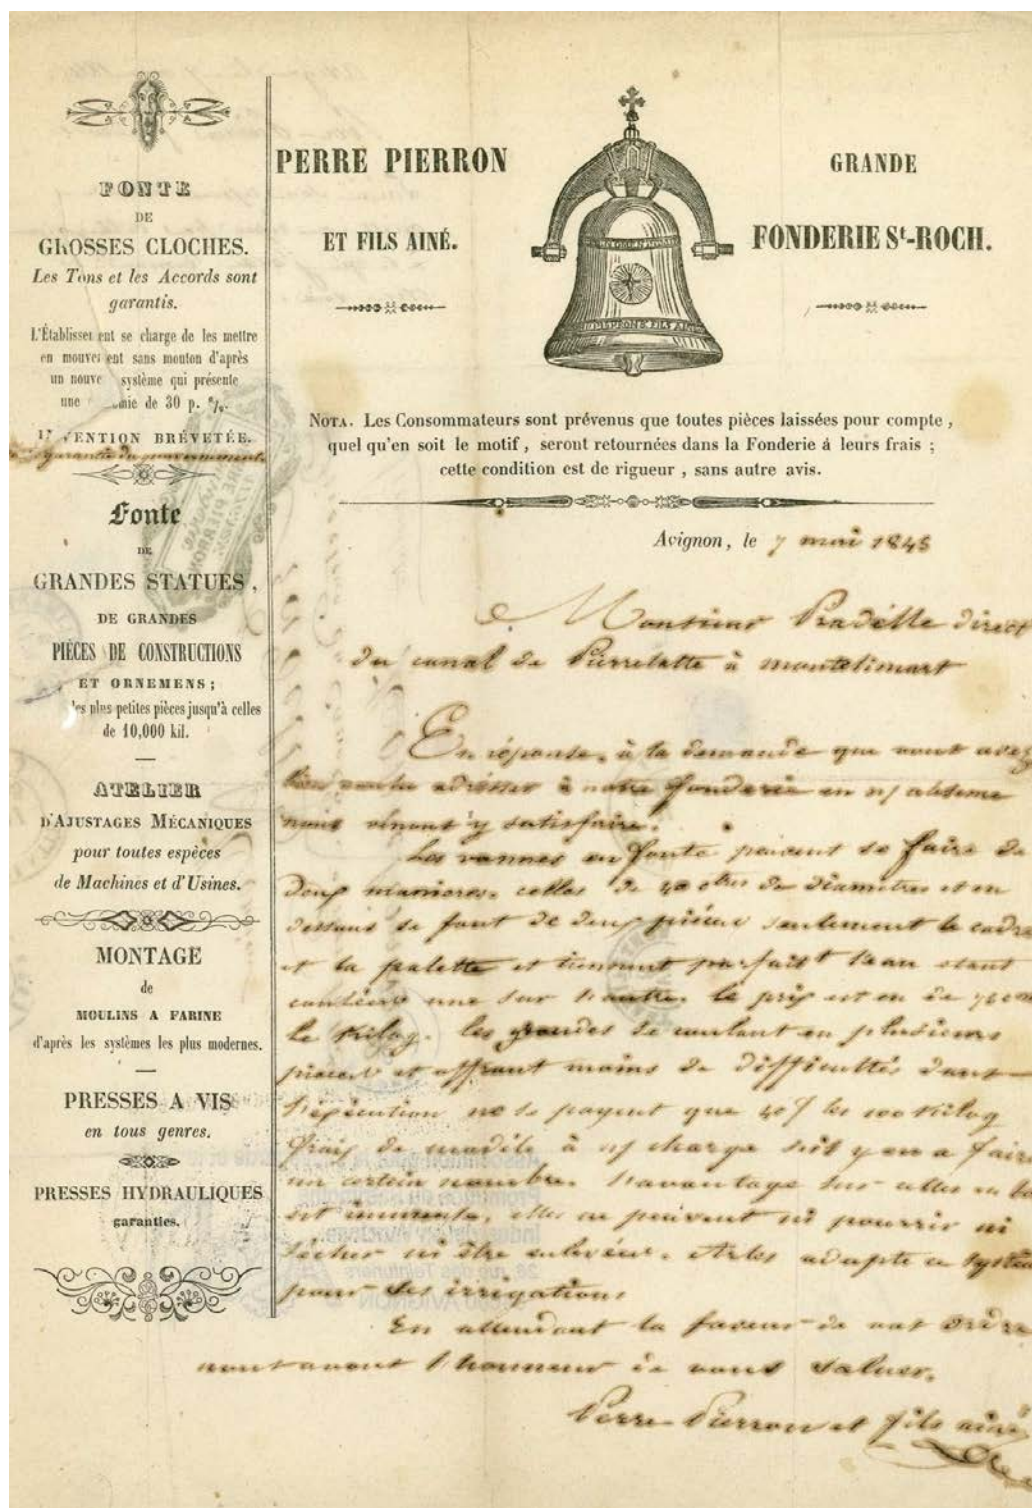 FONTE
DE
GROSSES CLOCHES.
Les Tons et les Accords sont
garantis.
L'Établisse ent se charge de les mettre
en mouve ent sans mouton d'après
un nouve système qui présente
une mie de 30 p. %.
VENTION BRÉVETÉE.
garantie du gouvernement.
Fonte
DE
GRANDES STATUES,
DE GRANDES
PIÈCES DE CONSTRUCTIONS
ET ORNEMENS;
les plus petites pièces jusqu'à celles
de 10,000 kil.
ATELIER
D'AJUSTAGES MÉCANIQUES
pour toutes espèces
de Machines et d'Usines.
MONTAGE
de
MOULINS A FARINE
d'après les systèmes les plus modernes.
PRESSES A VIS
en tous genres.
PRESSES HYDRAULIQUES
garanties.
PERRE PIERRON
ET FILS AINÉ.
GRANDE
FONDERIE St-ROCH.
NOTA. Les Consommateurs sont prévenus que toutes pièces laissées pour compte,
quel qu'en soit le motif, seront retournées dans la Fonderie á leurs frais;
cette condition est de rigueur, sans autre avis.
Avignon, le 7 mai 1845
Monsieur Pradelle direct
du canal de Pierrelatte à montelimart
En réponse, à la demande que vous avez
bien voulu adresser à notre fonderie en
nous venons y satisfaire.
Les vannes en fonte peuvent se faire de
deux manieres. celles de 40 de diamètres et en
dessous se font de deux pièces seulement le cadre
et la palette et tiennent parfait l'eau étant
une sur l'autre. le prix est en de
le kilog. les grandes se coulant en plusieurs
pieces et offrant moins de difficultés dans
l'exécution ne se payent que 40f les 100 kilog
frais de modèle à charge soit y en a faire
un certain nombre. l'avantage sur celles en bo
est immense, elles ne peuvent ni pourrir ni
sécher ni être enlevées. Arles adapte ce systèm
pour ses irrigations
En attendant la faveur de vos ordre
nous avons l'honneur de vous saluer.
Perre Pierron et fils ainé